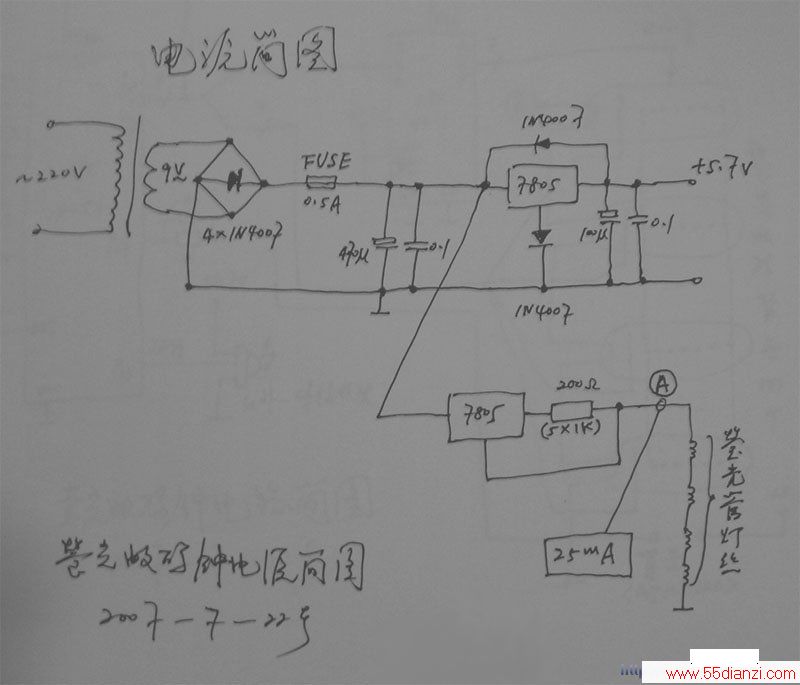 电源简图
~220V
9V
4×1N4007
FUSE
0.5A
470μ
0.1
1N4007
7805
1N4007
100μ
0.1
+5.7V
7805
200Ω
(5×1K)
A
25mA
荧光管灯丝
荧光数码钟电源简图
2007-7-22号
www.55dianzi.com